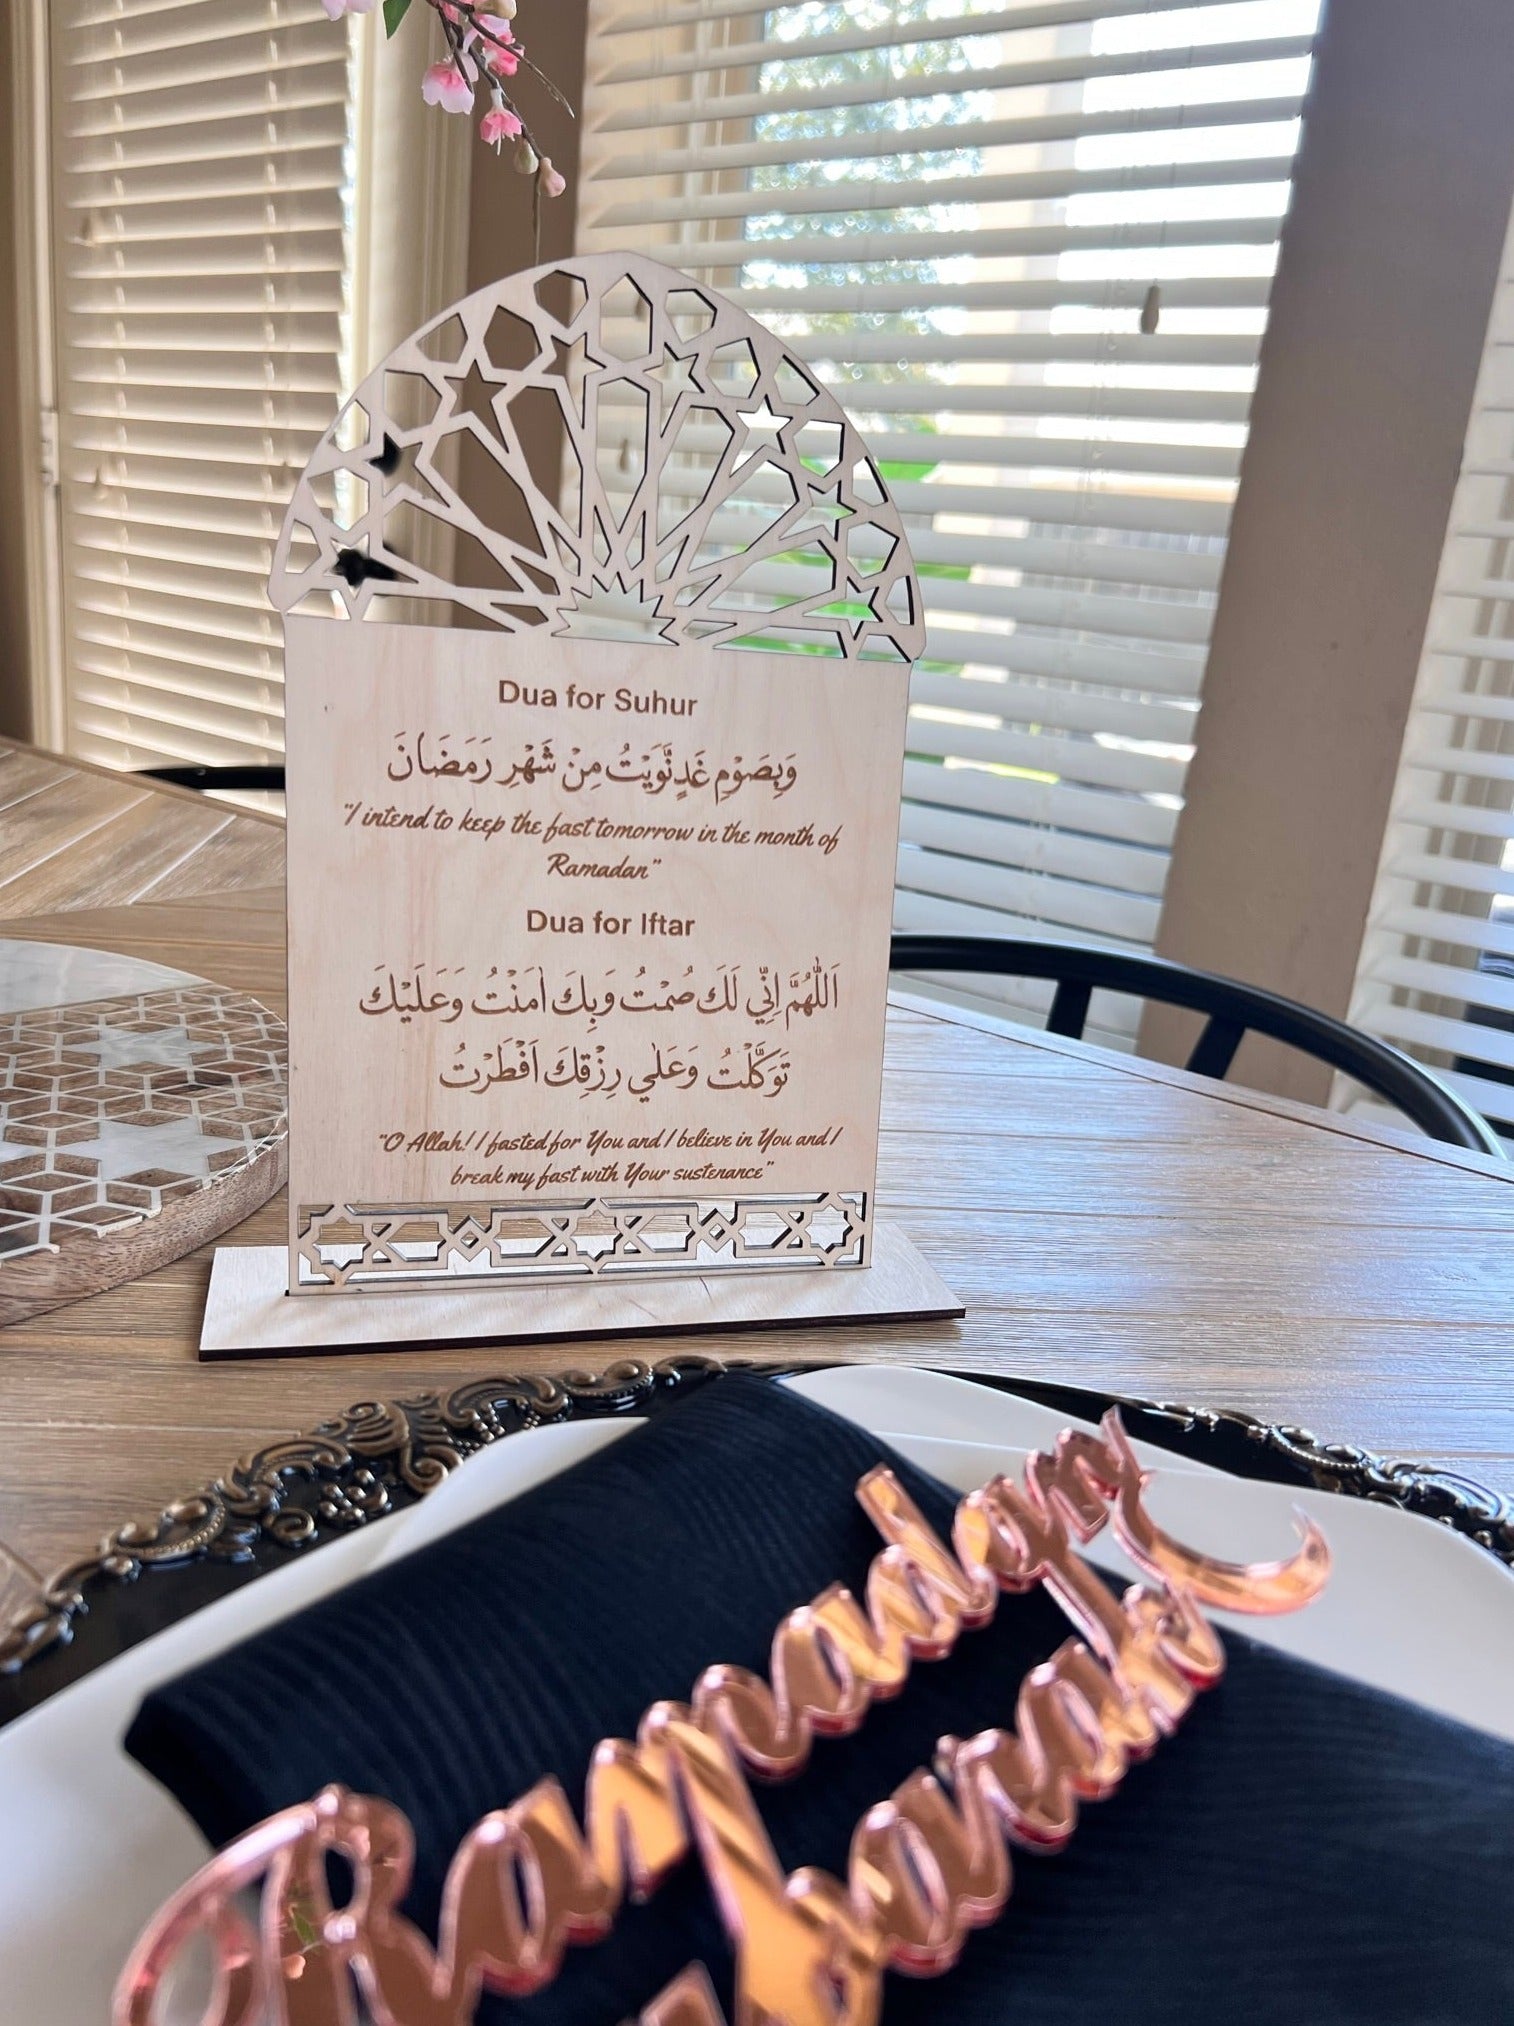 Dua for Suhur
وَبِصَوْمِ غَدٍ نَّوَيْتُ مِنْ شَهْرِ رَمَضَانَ
"I intend to keep the fast tomorrow in the month of
Ramadan"
Dua for Iftar
اَللّٰهُمَّ اِنِّي لَكَ صُمْتُ وَبِكَ اٰمَنْتُ وَعَلَيْكَ
تَوَكَّلْتُ وَعَلٰي رِزْقِكَ اَفْطَرْتُ
"O Allah! I fasted for You and I believe in You and I
break my fast with Your sustenance"
Ramadan